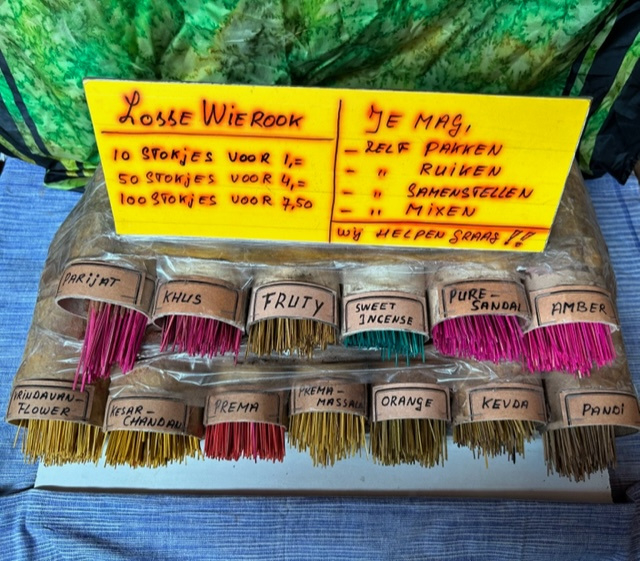 LOSSE WIEROOK
10 STOKJES VOOR 1,=
50 STOKJES VOOR 4,=
100 STOKJES VOOR 7,50
JE MAG,
- ZELF PAKKEN
- " RUIKEN
- " SAMENSTELLEN
- " MIXEN
WIJ HELPEN GRAAG!!
PARIJAT
KHUS
FRUTY
SWEET
INCENSE
PURE-
SANDAL
AMBER
FLOWER
KESAR-
CHANDAN
PREMA
PREMA-
MASSALA
ORANGE
KEVDA
PANDI